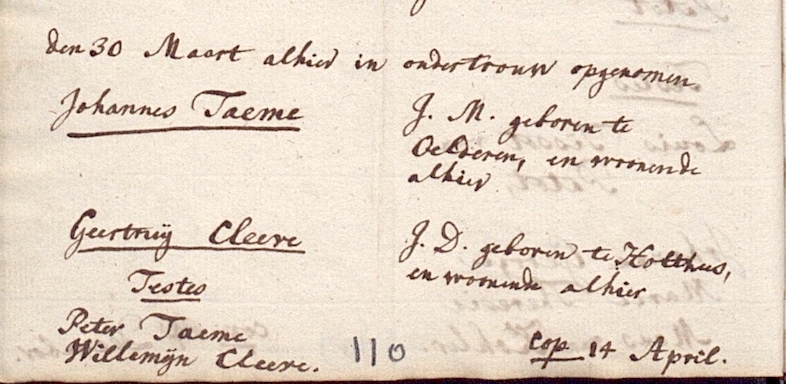 den 30 Maart alhier in ondertrouw opgenomen
Johannes Taeme
J. M. geboren te
Oelderen, en woonende
alhier
Geertruij Cleeve
J. D. geboren te Holthus,
en woonende alhier
Testes
Peter Taeme
Willemijn Cleeve.
110
Cop 14 April.